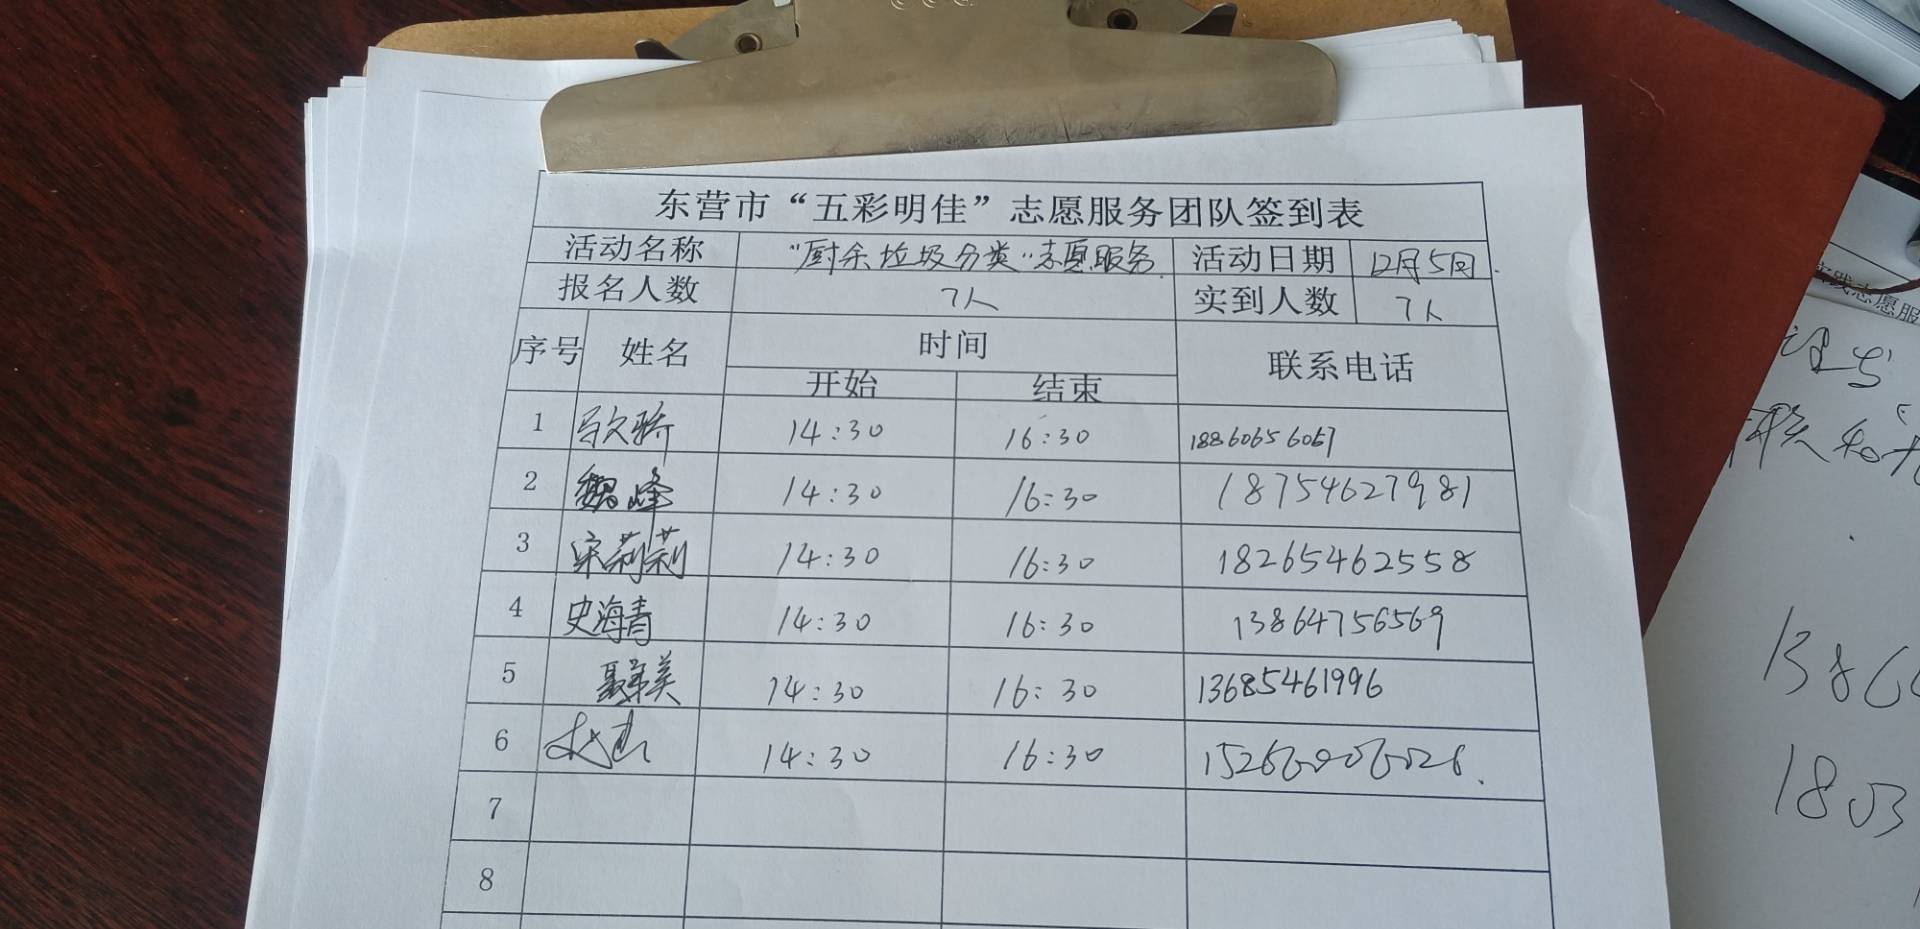 东营市“五彩明佳”志愿服务团队签到表
活动名称 “厨余垃圾分类”志愿服务 活动日期 12月5日
报名人数 7人 实到人数 7人
序号 姓名 时间 联系电话
开始 结束
1 14:30 16:30 18860656067
2 魏峰 14:30 16:30 18754627981
3 宋莉莉 14:30 16:30 18265462558
4 史海青 14:30 16:30 13864756569
5 聂弟美 14:30 16:30 13685461996
6 14:30 16:30
7
8
实践志愿服
1803